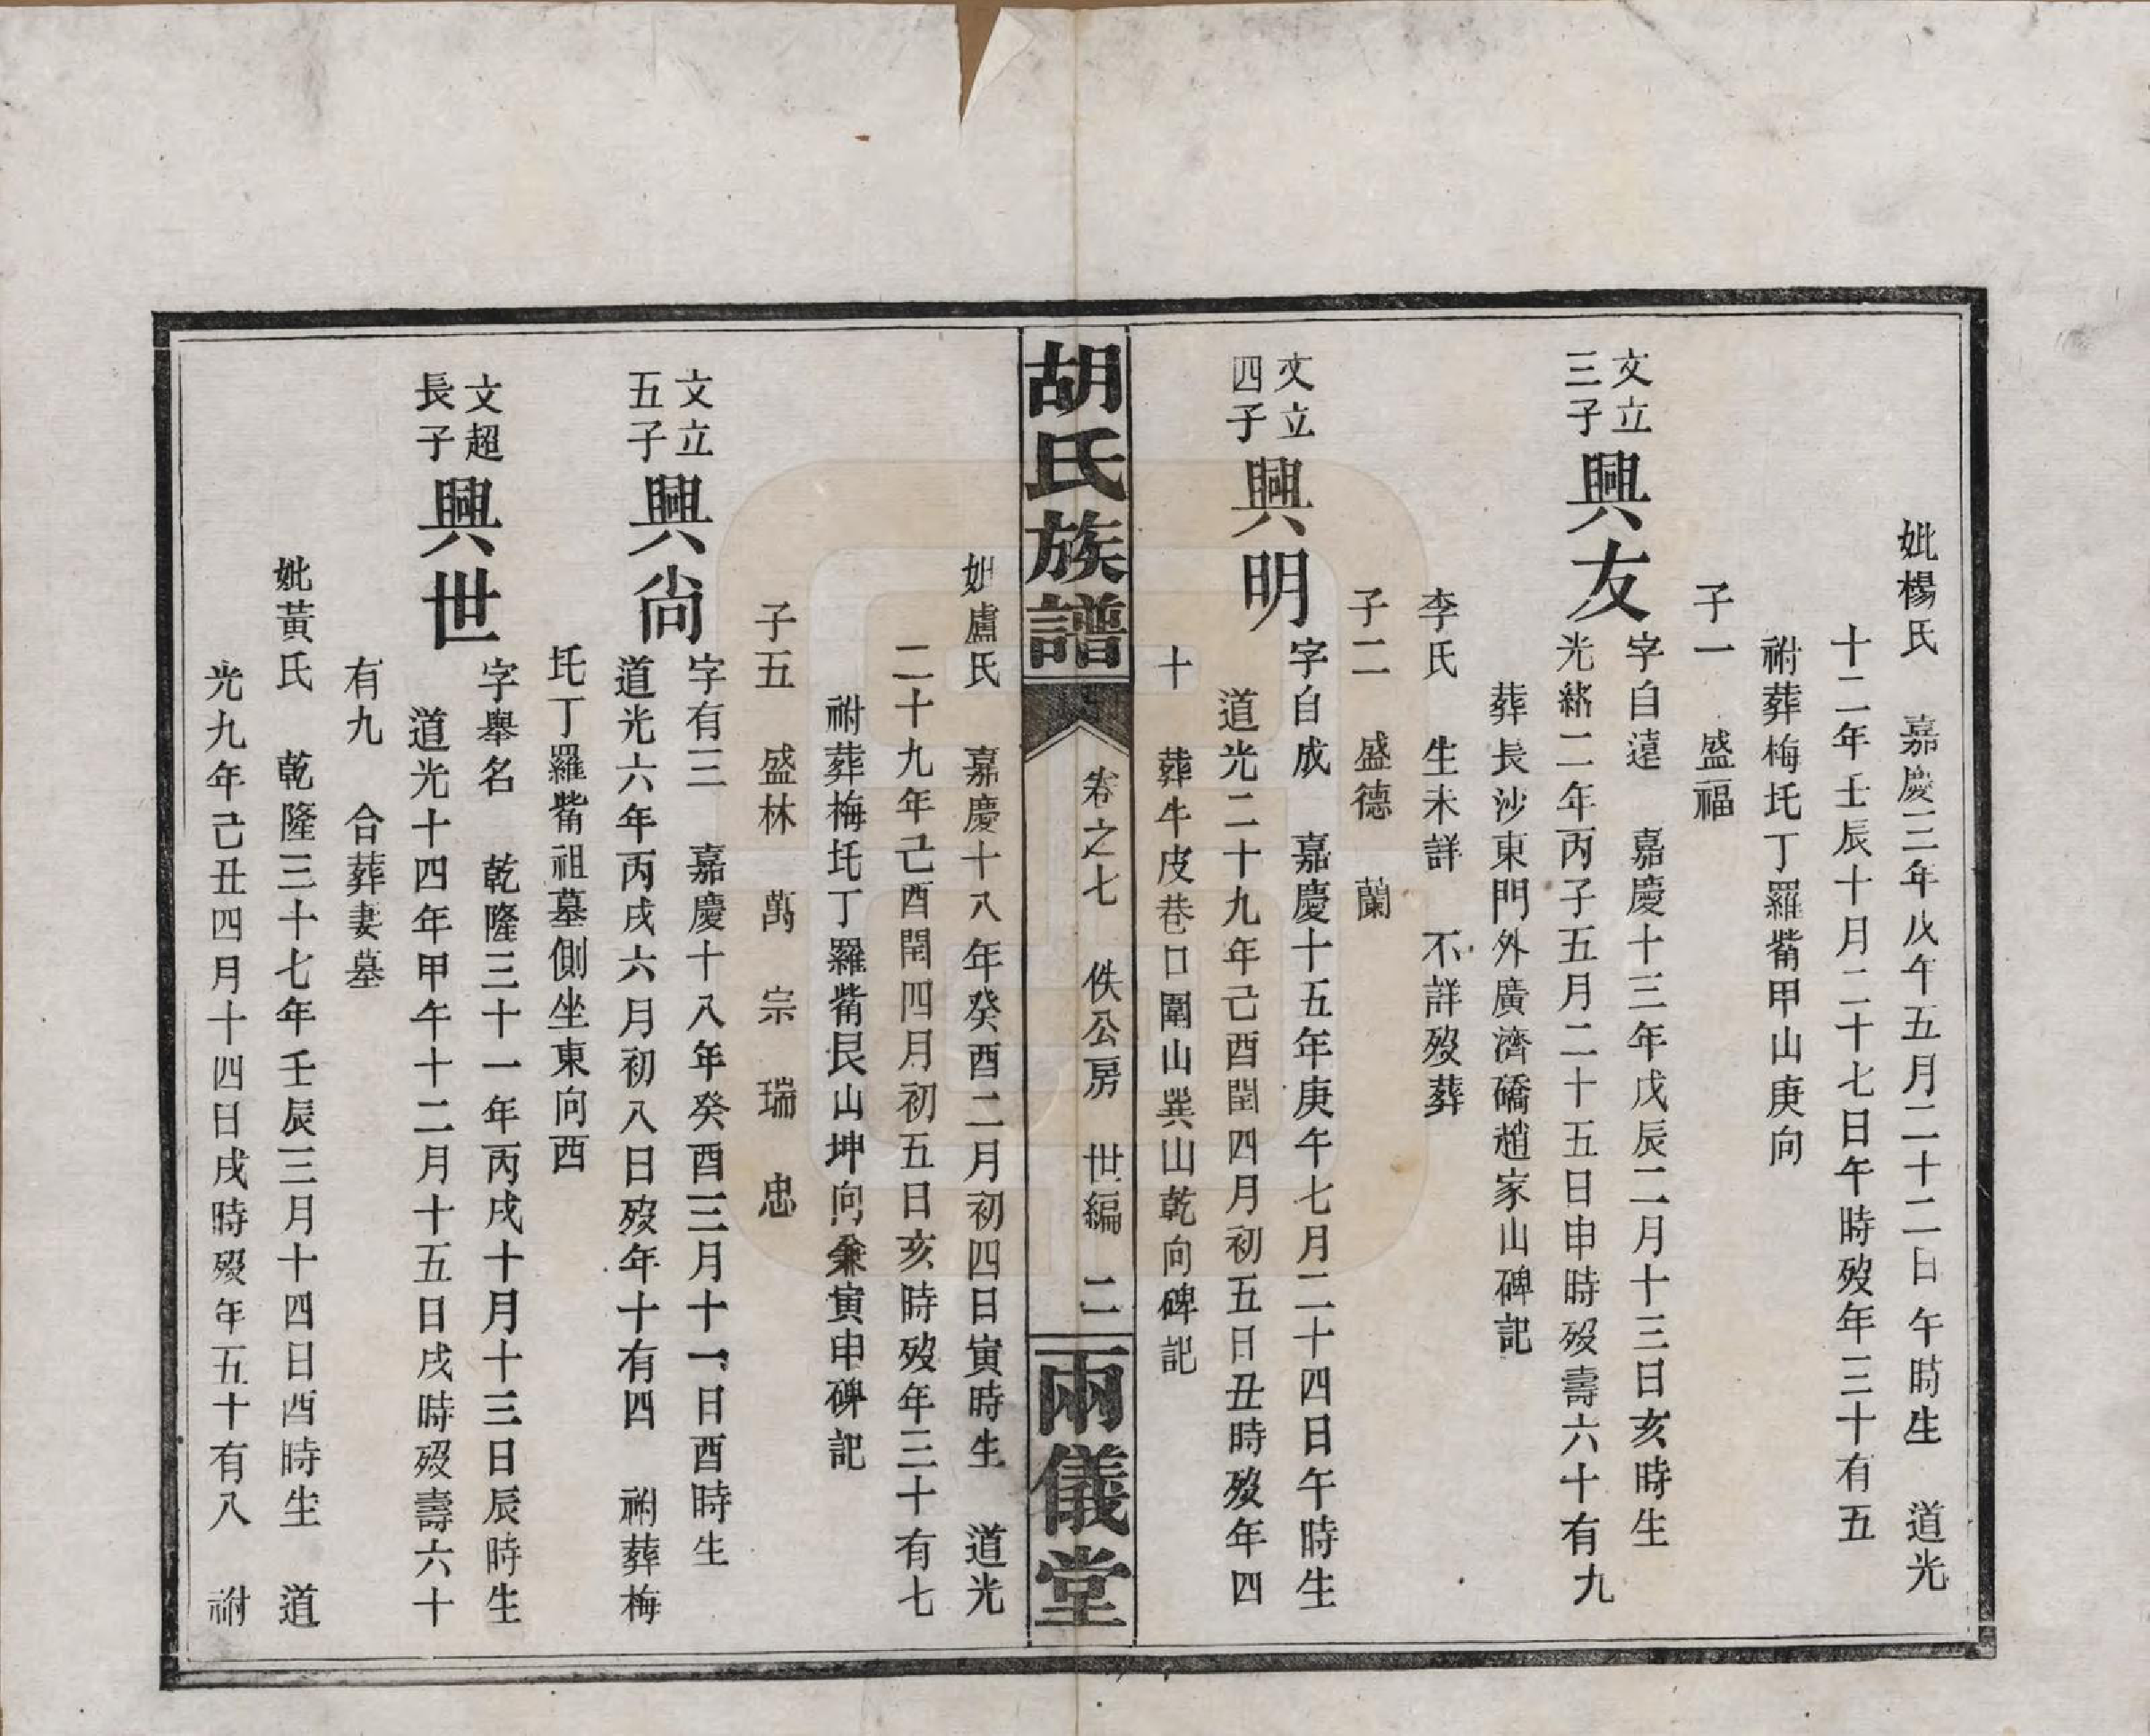 妣楊氏　嘉慶三年戊午五月二十二日午時生　道光
十二年壬辰十月二十七日午時歿年三十有五
祔葬梅圫丁羅觜甲山庚向
子一　盛福
文立
三子
興友
字自遠　嘉慶十三年戊辰二月十三日亥時生
光緒二年丙子五月二十五日申時歿壽六十有九
葬長沙東門外廣濟礄趙家山碑記
李氏　生未詳　不詳歿葬
子二　盛德　蘭
文立
四子
興明
字自成　嘉慶十五年庚午七月二十四日午時生
道光二十九年己酉閏四月初五日丑時歿年四
十　葬牛皮巷口圍山巽山乾向碑記
胡氏族譜
卷之七　佚公房　世編　二
兩儀堂
妣盧氏　嘉慶十八年癸酉二月初四日寅時生　道光
二十九年己酉閏四月初五日亥時歿年三十有七
祔葬梅圫丁羅觜艮山坤向兼寅申碑記
子五　盛林　萬　宗　瑞　忠
文立
五子
興尙
字有三　嘉慶十八年癸酉三月十一日酉時生
道光六年丙戌六月初八日歿年十有四　祔葬梅
圫丁羅觜祖墓側坐東向西
文超
長子
興世
字舉名　乾隆三十一年丙戌十月十三日辰時生
道光十四年甲午十二月十五日戌時歿壽六十
有九　合葬妻墓
妣黃氏　乾隆三十七年壬辰三月十四日酉時生　道
光九年己丑四月十四日戌時歿年五十有八　祔